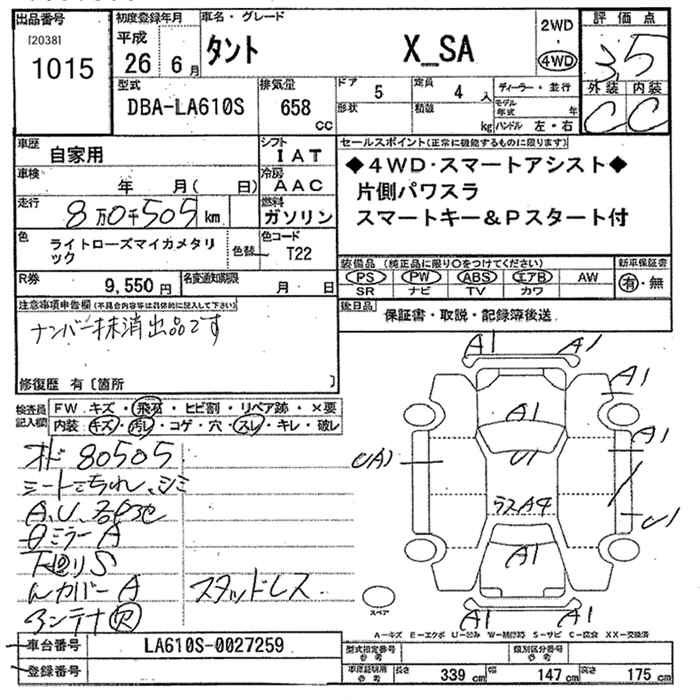 出品番号 初度登録年月 車名・グレード 2WD 評価点
[2038] 1015 平成 26 6月 タント X_SA 4WD 3.5
型式 DBA-LA610S 排気量 658 CC ドア 5 定員 4 人 ディーラー・並行 外装 内装
形状 積載 kg モデル年式 年 ハンドル 左・右 C C
車歴 自家用 シフト IAT セールスポイント(正常に機能するものに限ります)
車検 年 月( 日) 冷房 AAC ◆4WD・スマートアシスト◆
走行 8万0千505km 燃料 ガソリン 片側パワスラ
スマートキー&Pスタート付
色 ライトローズマイカメタリック 色替 色コード T22
装備品 (純正品に限り○をつけてください) 新車保証書
R券 9,550円 名変通知期限 月 日 PS PW ABS エアB AW 有・無
SR ナビ TV カワ
注意事項申告欄(不具合内容等は具体的に記入して下さい) 後日品 保証書・取説・記録簿後送
ナンバー抹消出品です
修復歴 有〔箇所 〕
検査員記入欄 FW キズ・飛石・ヒビ割・リペア跡・×要
内装 キズ・汚レ・コゲ・穴・スレ・キレ・破レ
オド 80505
シートよごれ、シミ
A.U.
ミラーA
下回りS
カバーA スタッドレス
アンテナ欠
A1 A1
A1
A1
A1
U(A) U1
ラスA4
U1
A1
A1 A1
スペア
A-キズ E-エクボ U-凹み W-補修跡 S-サビ C-腐食 XX-交換済
車台番号 LA610S-0027259 型式指定番号 参考 類別区分番号 参考
登録番号 車庫証明用 参考 長さ 339 cm 幅 147 cm 高さ 175 cm